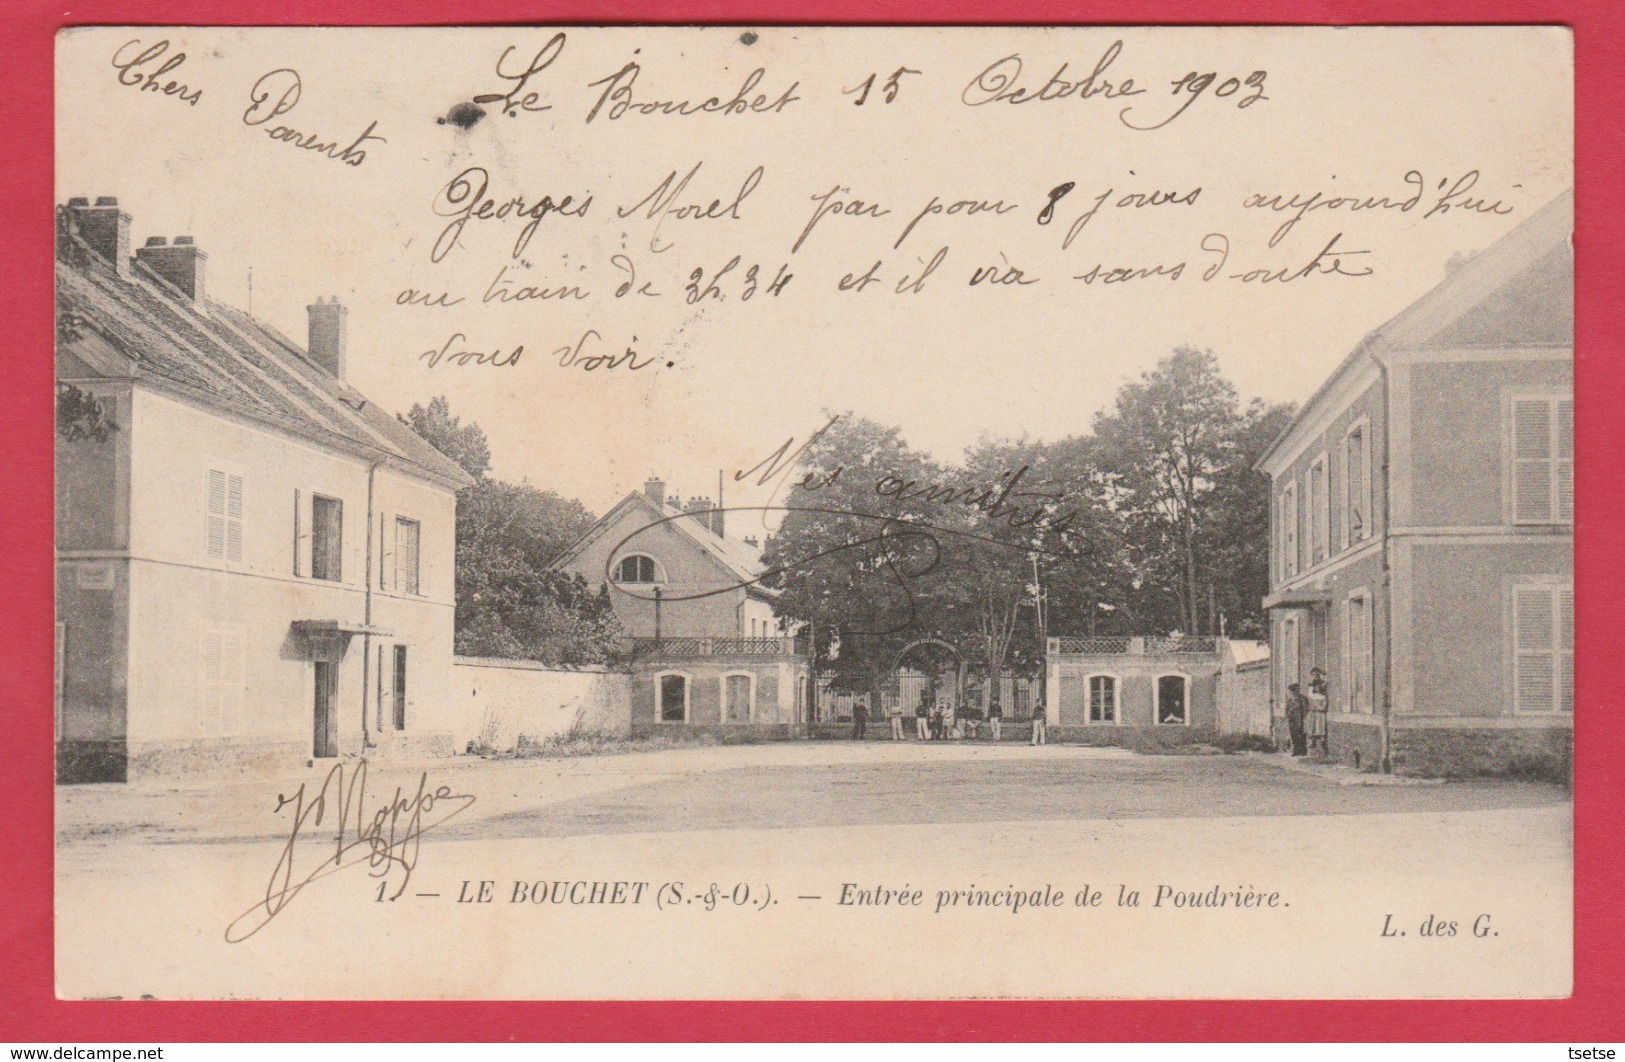 Le Bouchet 15 Octobre 1903
Chers
Parents
Georges Morel par pour 8 jours aujourd'hui
au train de 3h,34 et il via sans doute
vous voir.
Mes amitiés
1. — LE BOUCHET (S.-&-O.). — Entrée principale de la Poudrière.
L. des G.
tsetse